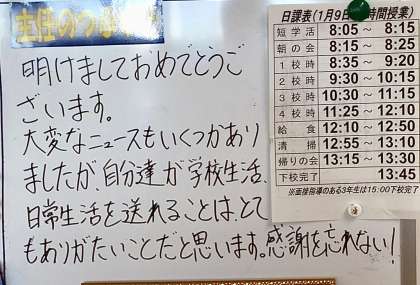 主任のつぶやき
明けましておめでとうご
ざいます。
大変なニュースもいくつかあり
ましたが、自分達が学校生活、
日常生活を送れることは、とて
もありがたいことだと思います。感謝を忘れない!
日課表(1月9日 時間授業)
短学活 8:05 ～ 8:15
朝の会 8:15 ～ 8:25
1校時 8:35 ～ 9:20
2校時 9:30 ～ 10:15
3校時 10:30 ～ 11:15
4校時 11:25 ～ 12:10
給食 12:10 ～ 12:50
清掃 12:55 ～ 13:10
帰りの会 13:15 ～ 13:30
下校完了 13:45
※面接指導のある3年生は15:00下校完了